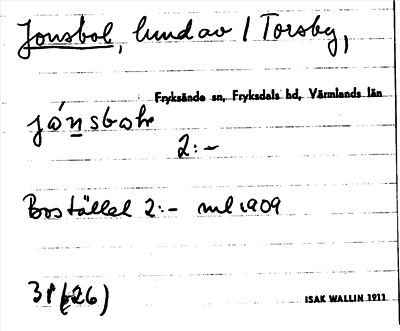 Jonsbol, lund av 1 Torsby,
Fryksände sn, Fryksdals hd, Värmlands län
jónsbole
2:-
Bostället 2:- ml 1909
38 (26)
ISAK WALLIN 1911